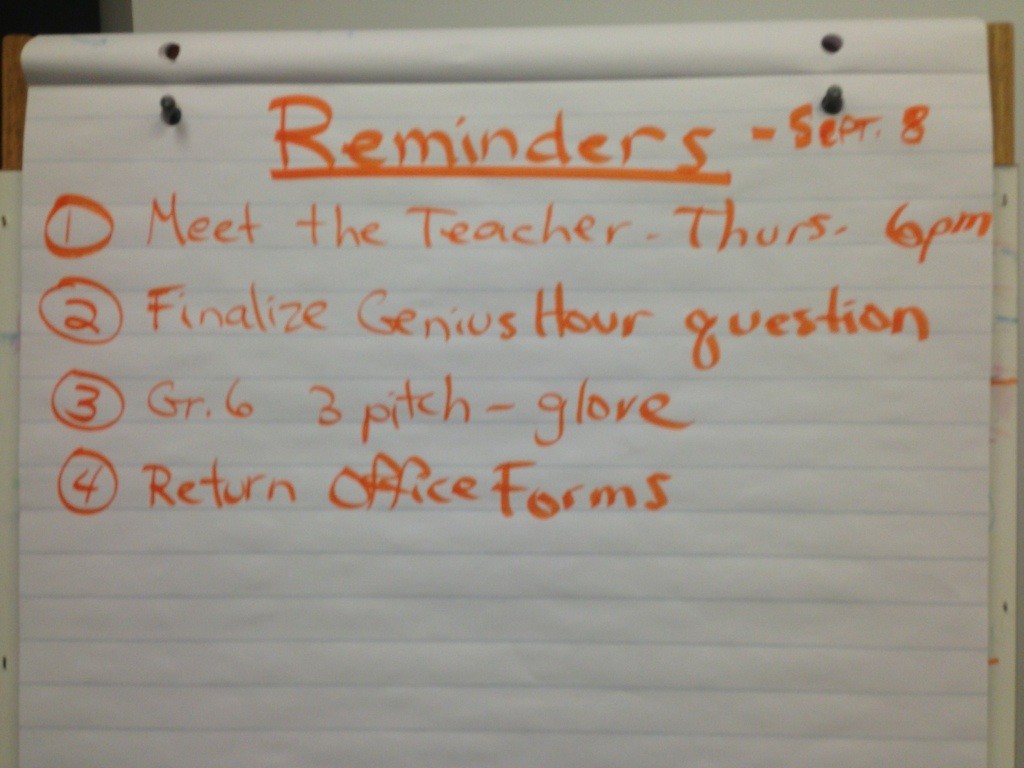 Reminders - Sept. 8
① Meet the Teacher - Thurs. 6pm
② Finalize Genius Hour question
③ Gr. 6 3 pitch - glove
④ Return Office Forms